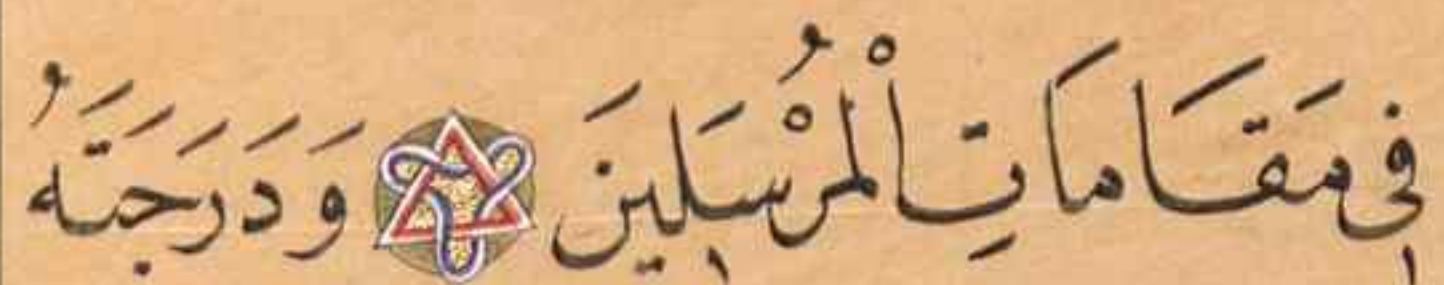 فِي مَقَامَاتِ الْمُرْسَلِينَ وَدَرَجَتَهُ